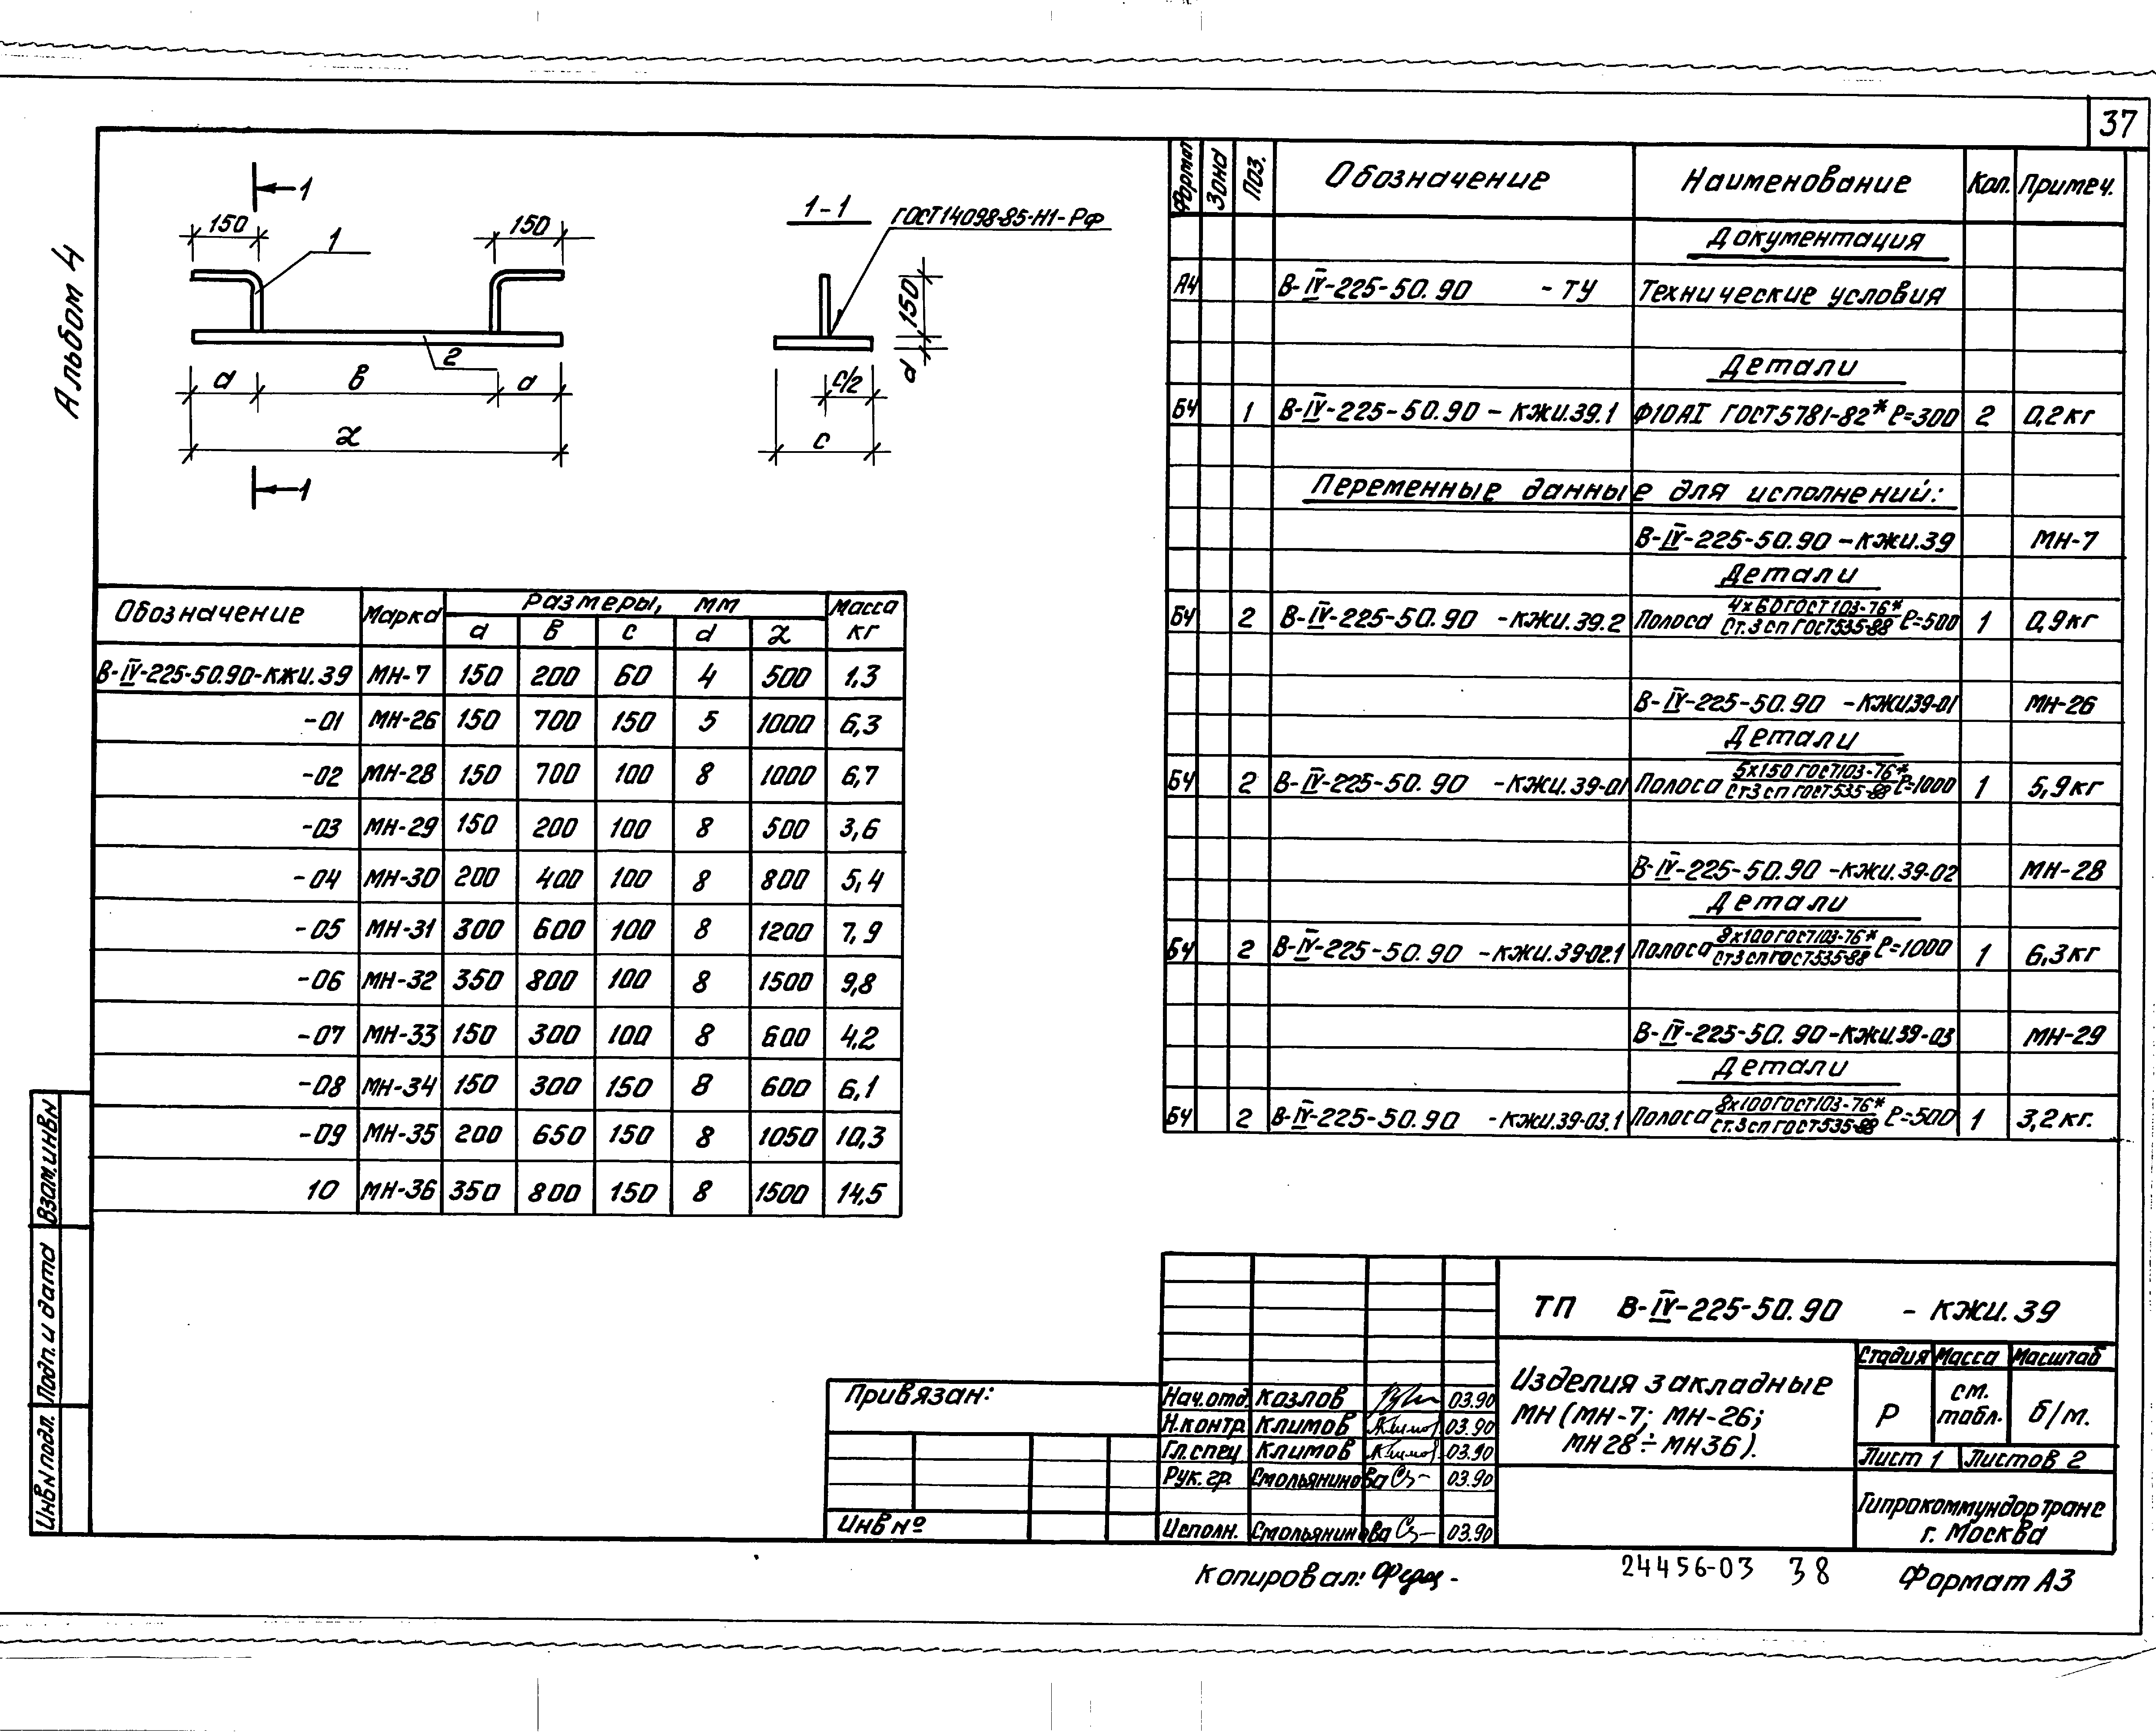 37
Альбом 4
1
150
150
1
2
а
в
а
α
1
1-1
ГОСТ14098-85-Н1-Рф
150
d
с/2
с
Обозначение Марка Размеры, мм Масса кг
а в с d α
В-IV-225-50.90-кжи.39 МН-7 150 200 60 4 500 1,3
-01 МН-26 150 700 150 5 1000 6,3
-02 МН-28 150 700 100 8 1000 6,7
-03 МН-29 150 200 100 8 500 3,6
-04 МН-30 200 400 100 8 800 5,4
-05 МН-31 300 600 100 8 1200 7,9
-06 МН-32 350 800 100 8 1500 9,8
-07 МН-33 150 300 100 8 600 4,2
-08 МН-34 150 300 150 8 600 6,1
-09 МН-35 200 650 150 8 1050 10,3
10 МН-36 350 800 150 8 1500 14,5
Формат Зона Поз. Обозначение Наименование Кол. Примеч.
Документация
А4 В-IV-225-50.90 -ТУ Технические условия
Детали
БЧ 1 В-IV-225-50.90-кжи.39.1 Ф10АI ГОСТ5781-82* ℓ=300 2 0,2кг
Переменные данные для исполнений:
В-IV-225-50.90-кжи.39 МН-7
Детали
БЧ 2 В-IV-225-50.90 -кжи.39.2 Полоса 4х60ГОСТ103-76* / Ст.3сп ГОСТ535-88 ℓ=500 1 0,9кг
В-IV-225-50.90 -кжи39-01 МН-26
Детали
БЧ 2 В-IV-225-50.90 -кжи.39-01 Полоса 5х150ГОСТ103-76* / Ст3сп ГОСТ535-88 ℓ=1000 1 5,9кг
В-IV-225-50.90-кжи.39-02 МН-28
Детали
БЧ 2 В-IV-225-50.90 -кжи.39-02.1 Полоса 8х100ГОСТ103-76* / Ст3сп ГОСТ535-88 ℓ=1000 1 6,3кг
В-IV-225-50.90-кжи.39-03 МН-29
Детали
БЧ 2 В-IV-225-50.90 -кжи.39-03.1 Полоса 8х100ГОСТ103-76* / Ст.3сп ГОСТ535-88 ℓ=500 1 3,2кг.
Взам.инвN
Подп. и дата
Инв N подл.
Привязан:
Инв №
Нач.отд. Козлов 03.90
Н.контр Климов 03.90
Гл.спец Климов 03.90
Рук.гр. Смольянинова 03.90
Исполн. Смольянинова 03.90
ТП В-IV-225-50.90 - кжи.39
Изделия закладные
МН (МН-7; МН-26;
МН28÷МН36).
Стадия Масса Масштаб
Р см. табл. б/м.
Лист 1 Листов 2
Гипрокоммундортранс
г. Москва
Копировал:
24456-03 38
Формат А3